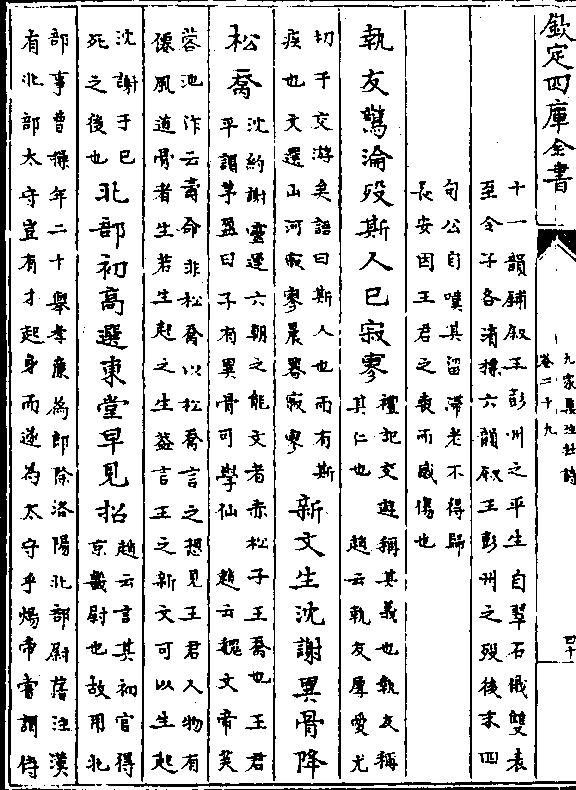 欽定四庫全書
九家集注杜詩
卷二十九
四十
十一韻鋪叙王彭州之平生自翠石俄雙表
至令子各清標六韻叙王彭州之殁後末四
句公自嘆其留滯老不得歸
長安因王君之喪而感傷也
執友驚淪殁斯人已寂寥
禮記交遊稱其義也執友稱
其仁也 趙云執友厚愛尤
切于交游矣語曰斯人也而有斯
疾也文選山河寂寥晨暮寂寥
新文生沈謝異骨降
松喬
沈約謝靈運六朝之能文者赤松子王喬也王君
平謂茅盈曰子有異骨可學仙 趙云魏文帝芙
蓉池作云壽命非松喬以松喬言之想見王君人物有
僊風道骨者生若生起之生益言王之新文可以生起
沈謝于已
死之後也
北部初髙選東堂早見招
趙云言其初官得
京畿尉也故用北
部事曹操年二十舉孝廉為郎除洛陽北部尉舊注漢
有北部太守豈有才起身而遂為太守乎煬帝嘗謂侍